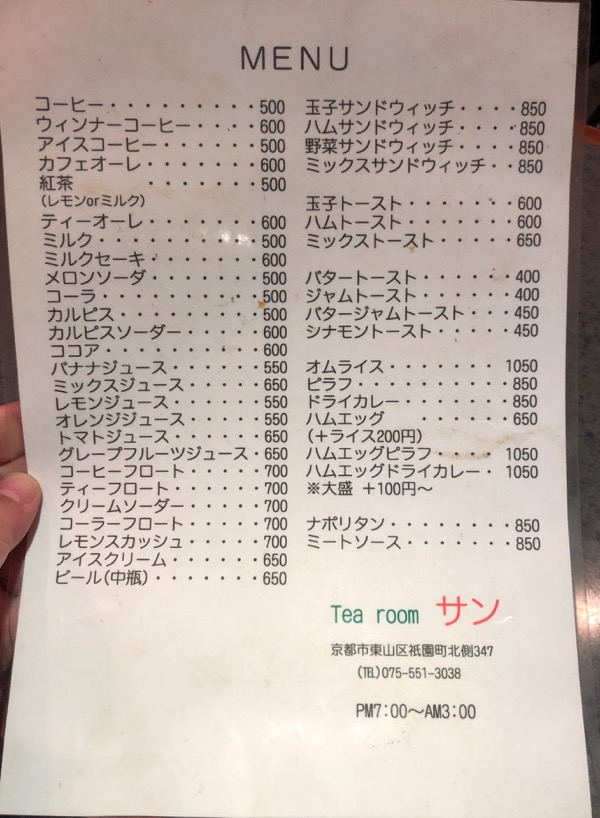 MENU
コーヒー・・・・・・・・・500
ウィンナーコーヒー・・・・600
アイスコーヒー・・・・・・500
カフェオーレ・・・・・・・600
紅茶　　　　・・・・・・・500
(レモンorミルク)
ティーオーレ・・・・・・・600
ミルク・・・・・・・・・・500
ミルクセーキ・・・・・・・600
メロンソーダ・・・・・・・500
コーラ・・・・・・・・・・500
カルピス・・・・・・・・・500
カルピスソーダー・・・・・600
ココア・・・・・・・・・・600
バナナジュース・・・・・・550
ミックスジュース・・・・・650
レモンジュース・・・・・・550
オレンジジュース・・・・・550
トマトジュース・・・・・・650
グレープフルーツジュース・650
コーヒーフロート・・・・・700
ティーフロート・・・・・・700
クリームソーダー・・・・・700
コーラーフロート・・・・・700
レモンスカッシュ・・・・・700
アイスクリーム・・・・・・650
ビール(中瓶)・・・・・・・650
玉子サンドウィッチ・・・・850
ハムサンドウィッチ・・・・850
野菜サンドウィッチ・・・・850
ミックスサンドウィッチ・・850
玉子トースト・・・・・・・600
ハムトースト・・・・・・・600
ミックストースト・・・・・650
バタートースト・・・・・・400
ジャムトースト・・・・・・400
バタージャムトースト・・・450
シナモントースト・・・・・450
オムライス・・・・・・・1050
ピラフ・・・・・・・・・・850
ドライカレー・・・・・・・850
ハムエッグ　　・・・・・・650
(＋ライス200円)
ハムエッグピラフ・・・・1050
ハムエッグドライカレー・1050
※大盛 ＋100円〜
ナポリタン・・・・・・・・850
ミートソース・・・・・・・850
Tea room サン
京都市東山区祇園町北側347
(℡)075-551-3038
PM7:00〜AM3:00